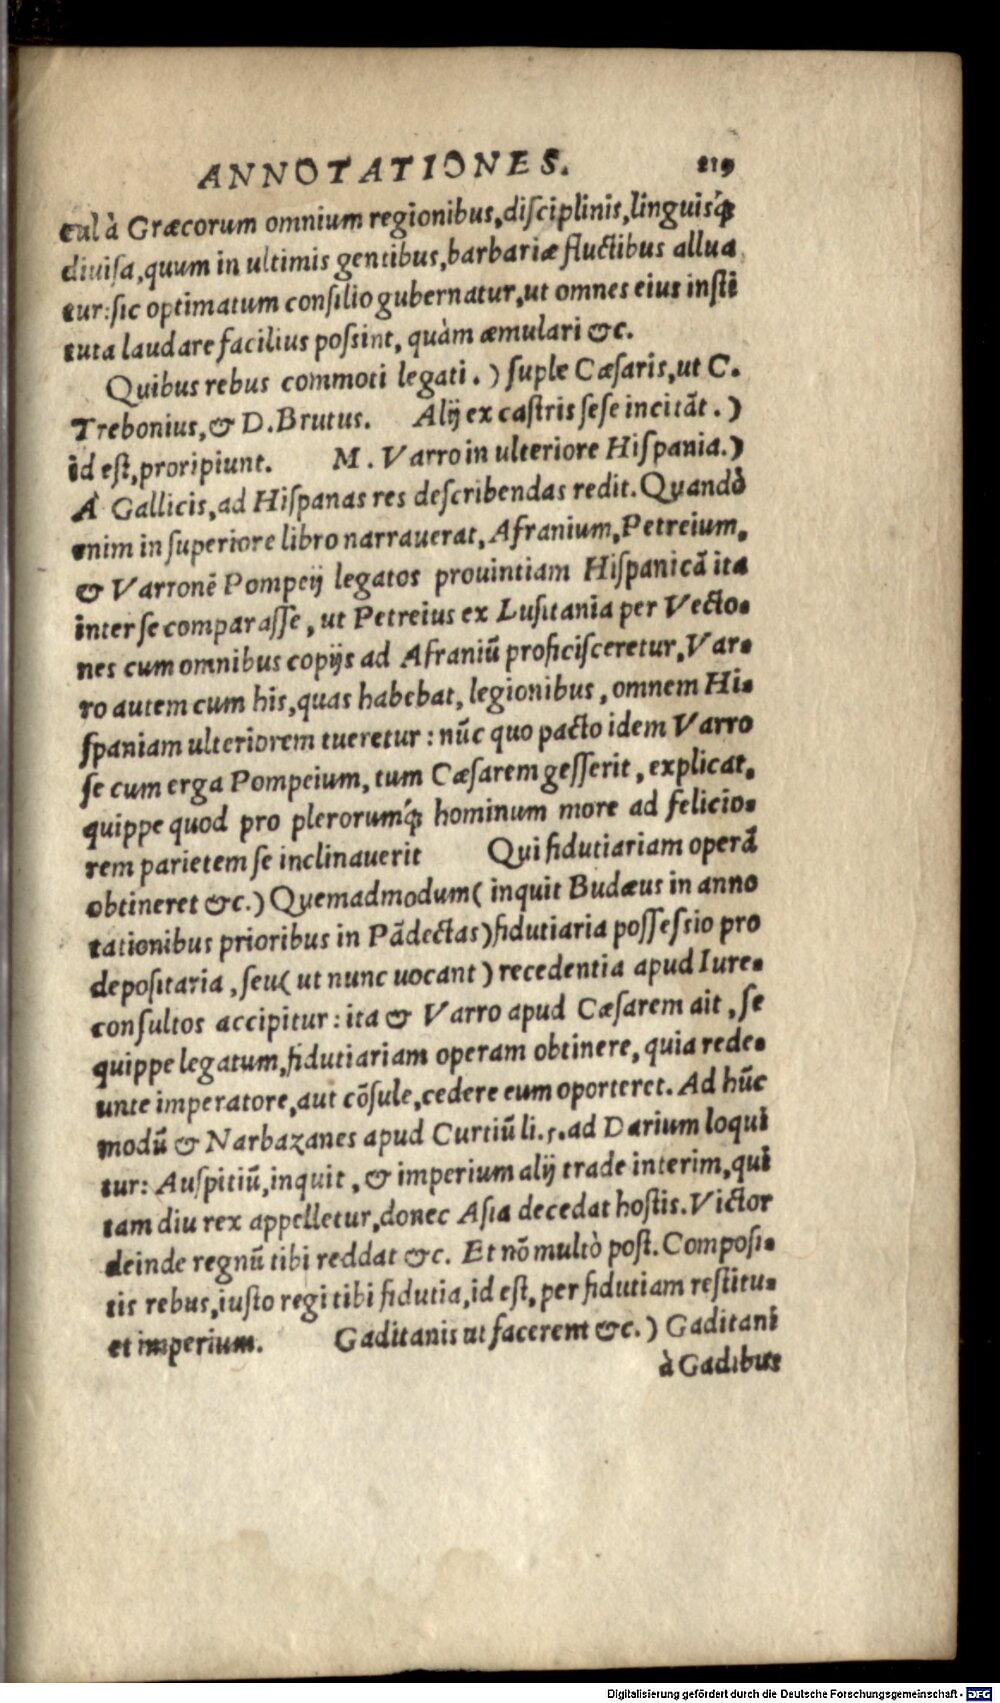 ANNOTATIONES. 119
cul à Græcorum omnium regionibus, disciplinis, linguisq́;
diuisa, quum in ultimis gentibus, barbariæ fluctibus allua
tur: sic optimatum consilio gubernatur, ut omnes eius insti
tuta laudare facilius possint, quàm æmulari &c.
Quibus rebus commoti legati.) suple Cæsaris, ut C.
Trebonius, & D. Brutus. Alij ex castris sese incitāt.)
id est, proripiunt. M. Varro in ulteriore Hispania.)
A Gallicis, ad Hispanas res describendas redit. Quandò
enim in superiore libro narrauerat, Afranium, Petreium,
& Varronē Pompeij legatos prouintiam Hispanicā ita
inter se comparasse, ut Petreius ex Lusitania per Vecto-
nes cum omnibus copijs ad Afraniū proficisceretur, Var-
ro autem cum his, quas habebat, legionibus, omnem Hi-
spaniam ulteriorem tueretur: nūc quo pacto idem Varro
se cum erga Pompeium, tum Cæsarem gesserit, explicat,
quippe quod pro plerorumq́; hominum more ad felicio-
rem parietem se inclinauerit Qui fidutiariam operā
obtineret &c.) Quemadmodum (inquit Budæus in anno
tationibus prioribus in Pādectas) fidutiaria possessio pro
depositaria, seu (ut nunc uocant) recedentia apud Iure-
consultos accipitur: ita & Varro apud Cæsarem ait, se
quippe legatum, fidutiariam operam obtinere, quia rede-
unte imperatore, aut cōsule, cedere eum oporteret. Ad hūc
modū & Narbazanes apud Curtiū li. 5. ad Darium loqui
tur: Auspitiū, inquit, & imperium alij trade interim, qui
tam diu rex appelletur, donec Asia decedat hostis. Victor
deinde regnū tibi reddat &c. Et nō multò post. Composi-
tis rebus, iusto regi tibi fidutia, id est, per fidutiam restitu-
et imperium. Gaditanis ut facerent &c.) Gaditani
à Gadibus
Digitalisierung gefördert durch die Deutsche Forschungsgemeinschaft - DFG